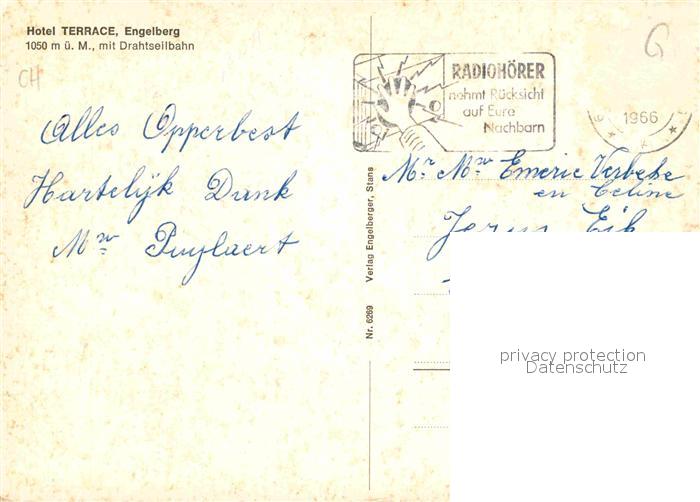 Hotel TERRACE, Engelberg
1050 m ü. M., mit Drahtseilbahn
CH
G
Alles Opperbest
Hartelijk Dank
Mw Puylaert
RADIOHÖRER
nehmt Rücksicht
auf Eure
Nachbarn
1966
Mr Mw Emerie Verbeke
en Celine
Verlag Engelberger, Stans
Nr. 6269
privacy protection
Datenschutz